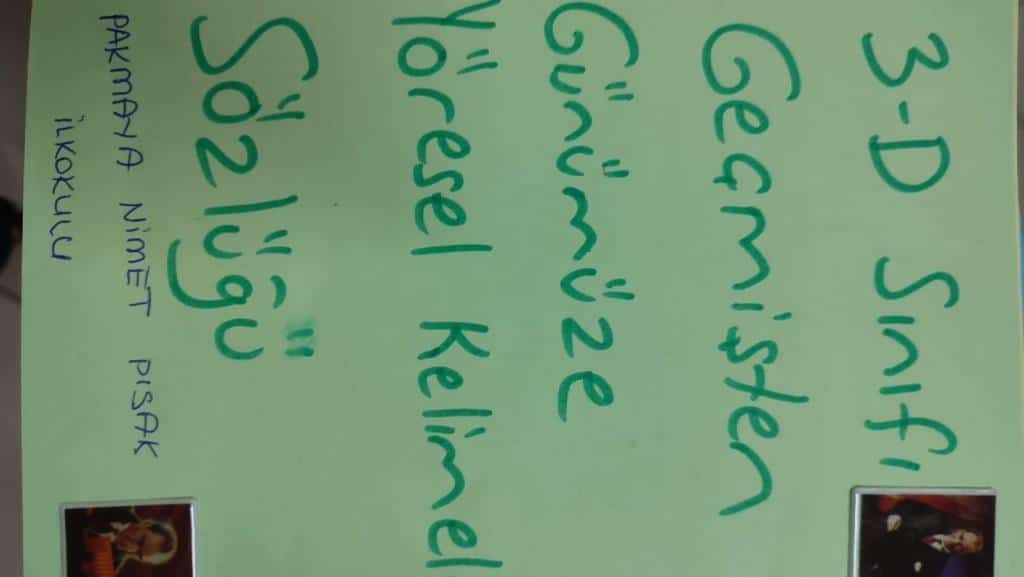 3-D Sınıfı
Geçmişten
Günümüze
Yöresel Kelimel
Sözlüğü
PAKMAYA NİMET PISAK
İLKOKULU